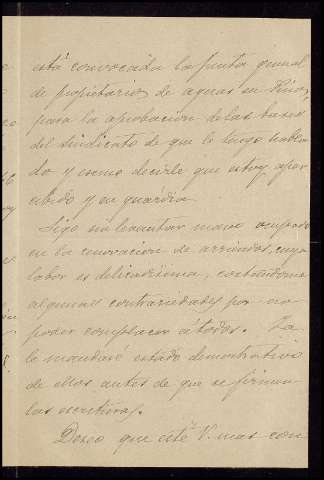 está convocada la junta general
de propietarios de aguas en Pinos,
para la aprobacion de las bases
del sindicato de que le tengo habla-
do y escuso decirle que estoy aper-
cibido y en guárdia.
Sigo sin levantar mano ocupado
en la renovacion de arriendos, cuya
labor es delicadisima, costandome
algunas contrariedades por no
poder complacer á todos. Ya
le mandaré estado demostrativo
de ellos antes de que se firmen
las escrituras.
Deseo que esté V. mas con-